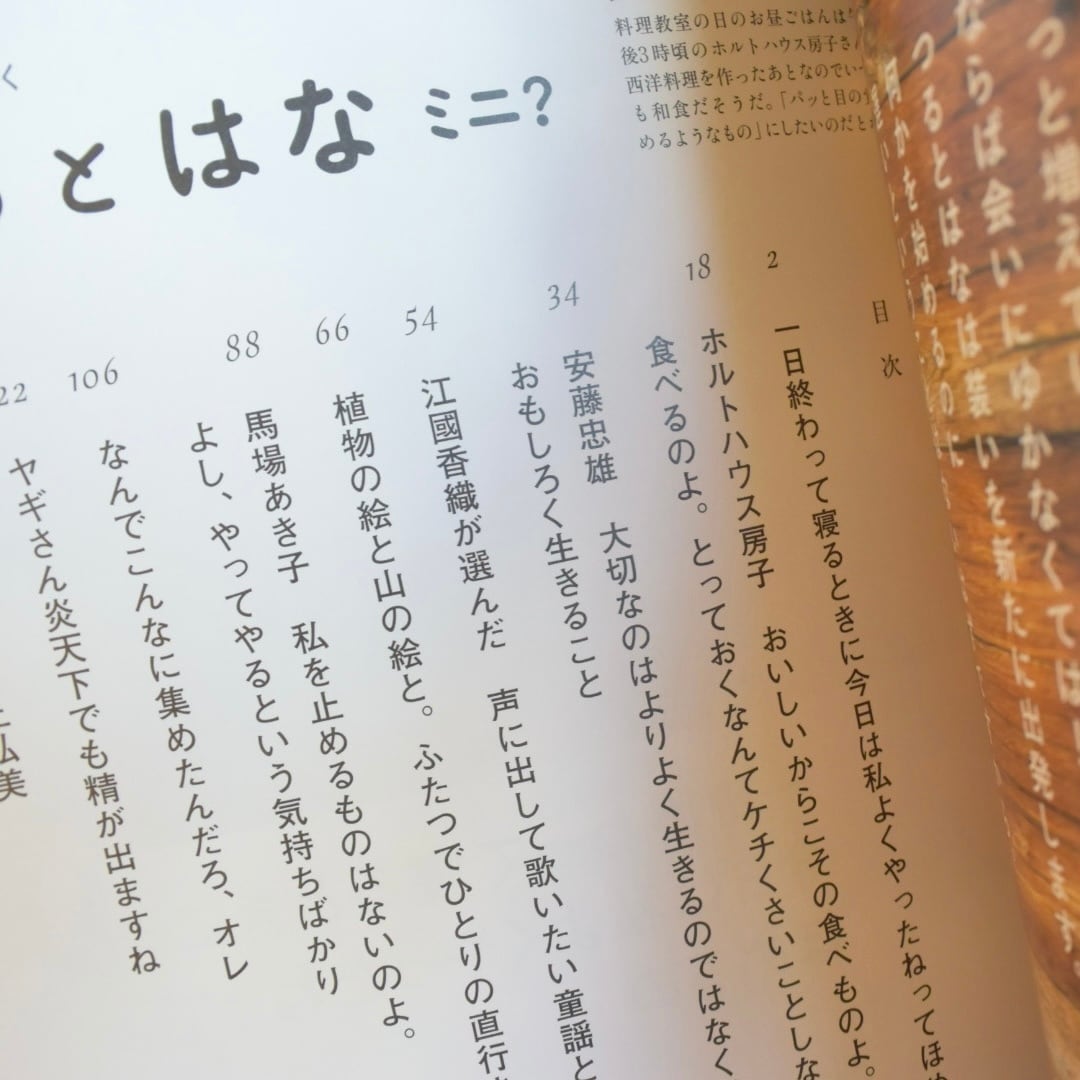 く
とはな ミニ?
料理教室の日のお昼ごはんは
後3時頃のホルトハウス房子さ
西洋料理を作ったあとなのでい
も和食だそうだ。「パッと目の
めるようなもの」にしたいのだと
っと増えて
ならば会いにゆかなくては
つるとはなは装いを新たに出発します
何かを始めるのに
目次
2
一日終わって寝るときに今日は私よくやったねってほ
18
ホルトハウス房子 おいしいからこその食べものよ。
食べるのよ。とっておくなんてケチくさいことしな
34
安藤忠雄 大切なのはよりよく生きるのではなく
おもしろく生きること
54
江國香織が選んだ 声に出して歌いたい童謡と
66
植物の絵と山の絵と。ふたつでひとりの直行
88
馬場あき子 私を止めるものはないのよ。
よし、やってやるという気持ちばかり
106
なんでこんなに集めたんだろ、オレ
22
ヤギさん炎天下でも精が出ますね
弘美